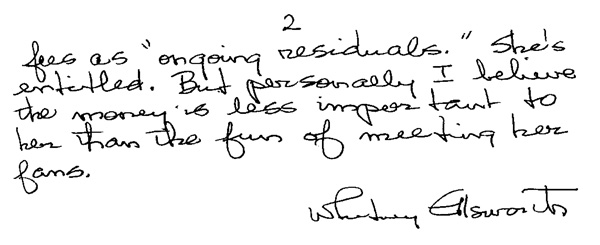 2
fees as "ongoing residuals." She's
entitled. But personally I believe
the money is less important to
her than the fun of meeting her
fans.
Whitney Ellsworth